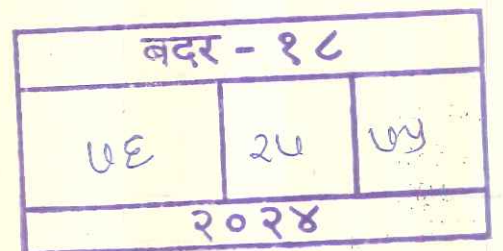 बदर - १८
७६ २५ ७५
२०२४